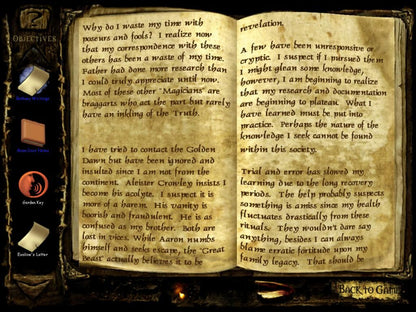 OBJECTIVES
Garden Key
Evelyn's Letter
Why do I waste my time with
poseurs and fools? I realize now
that my correspondence with these
others has been a waste of my time.
Father had done more research than
I could truly appreciate until now.
Most of these other "Magicians" are
braggarts who act the part but rarely
have an inkling of the Truth.
I have tried to contact the Golden
Dawn but have been ignored and
insulted since I am not from the
continent. Aleister Crowley insists I
become his acolyte. I suspect it is
more of a harem. His vanity is
boorish and fraudulent. He is as
confused as my brother. Both are
lost in vices. While Aaron numbs
himself and seeks escape, the "Great
Beast" actually believes it to be
revelation.
A few have been unresponsive or
cryptic. I suspect if I pursued them
I might glean some knowledge,
however, I am beginning to realize
that my research and documentation
are beginning to plateau. What I
have learned must be put into
practice. Perhaps the nature of the
knowledge I seek cannot be found
within this society.
Trial and error has slowed my
learning due to the long recovery
periods. The help probably suspects
something is amiss since my health
fluctuates drastically from these
rituals. They wouldn't dare say
anything, besides I can always
blame erratic fortitude upon my
family legacy. That should be
BACK TO GAME